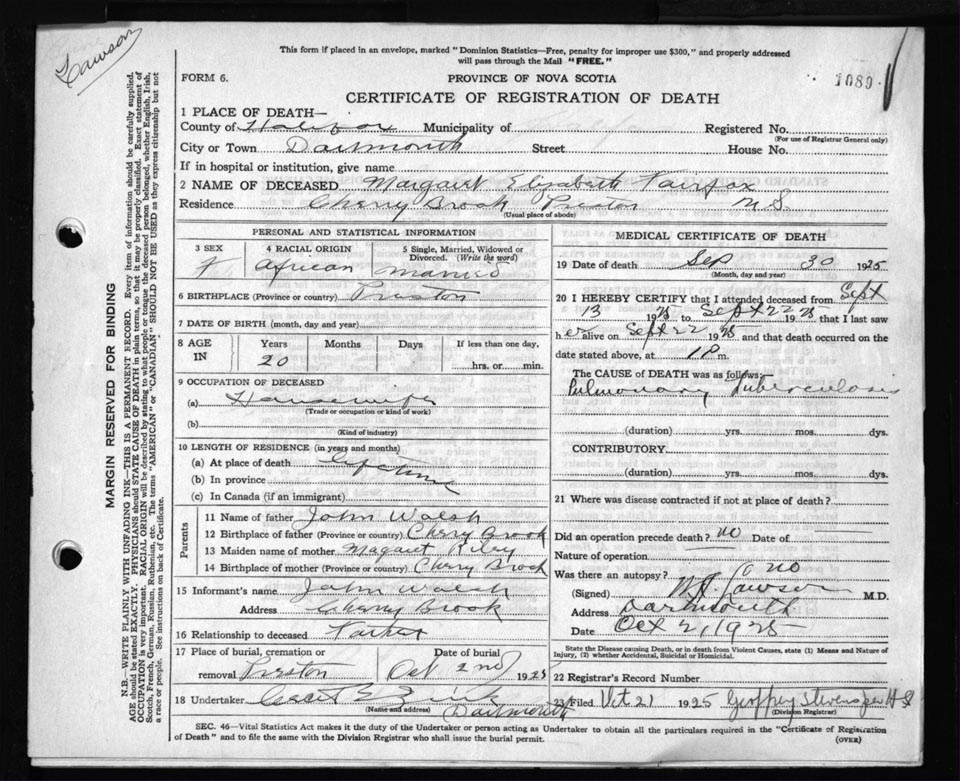 Lawson
This form if placed in an envelope, marked "Dominion Statistics—Free, penalty for improper use $300," and properly addressed
will pass through the Mail "FREE."
FORM 6.
PROVINCE OF NOVA SCOTIA
1089
CERTIFICATE OF REGISTRATION OF DEATH
1 PLACE OF DEATH—
County of Halifax Municipality of Registered No.
(For use of Registrar General only)
City or Town Dartmouth Street House No.
If in hospital or institution, give name
2 NAME OF DECEASED Margaret Elizabeth Fairfax
Residence Cherry Brook Preston N.S.
(Usual place of abode)
PERSONAL AND STATISTICAL INFORMATION
3 SEX 4 RACIAL ORIGIN 5 Single, Married, Widowed or
Divorced. (Write the word)
f African Married
6 BIRTHPLACE (Province or country) Preston
7 DATE OF BIRTH (month, day and year)
8 AGE Years Months Days If less than one day,
IN 20 hrs. or min.
9 OCCUPATION OF DECEASED
(a) Housewife
(Trade or occupation or kind of work)
(b)
(Kind of industry)
10 LENGTH OF RESIDENCE (in years and months)
(a) At place of death Lifetime
(b) In province
(c) In Canada (if an immigrant)
Parents
11 Name of father John Walsh
12 Birthplace of father (Province or country) Cherry Brook
13 Maiden name of mother Magaret Riley
14 Birthplace of mother (Province or country) Cherry Brook
15 Informant's name John Walsh
Address Cherry Brook
16 Relationship to deceased Father
17 Place of burial, cremation or Date of burial
removal Preston Oct 2nd 1925
18 Undertaker Zink
(Name and address) Dartmouth
MEDICAL CERTIFICATE OF DEATH
19 Date of death Sep 30 1925
(Month, day and year)
20 I HEREBY CERTIFY that I attended deceased from Sept
13 1925 to Sept 22 1925 that I last saw
her alive on Sept 22 1925 and that death occurred on the
date stated above, at m.
The CAUSE OF DEATH was as follows:—
Pulmonary Tuberculosis
(duration) yrs. mos. dys.
CONTRIBUTORY
(duration) yrs. mos. dys.
21 Where was disease contracted if not at place of death?
Did an operation precede death? no Date of
Nature of operation
Was there an autopsy? no
(Signed) Lawson M.D.
Address Dartmouth
Date Oct 2, 1925
State the Disease causing Death, or in death from Violent Causes, state (1) Means and Nature of
Injury, (2) whether Accidental, Suicidal or Homicidal.
22 Registrar's Record Number
23 Filed Oct 21 1925 Geoffrey Stevens
(Division Registrar)
SEC. 46—Vital Statistics Act makes it the duty of the Undertaker or person acting as Undertaker to obtain all the particulars required in the "Certificate of Registration
of Death" and to file the same with the Division Registrar who shall issue the burial permit. (OVER)
MARGIN RESERVED FOR BINDING
N.B.—WRITE PLAINLY WITH UNFADING INK—THIS IS A PERMANENT RECORD. Every item of information should be carefully supplied.
AGE should be stated EXACTLY. PHYSICIANS should STATE CAUSE OF DEATH in plain terms, so that it may be properly classified. Exact statement of
OCCUPATION is very important. RACIAL ORIGIN will be described by stating to what people or tongue the deceased person belonged, whether English, Irish,
Scotch, French, German, Russian, Ruthenian, etc. The terms "AMERICAN" or "CANADIAN" SHOULD NOT BE USED as they express citizenship but not
a race or people. See instructions on back of Certificate.